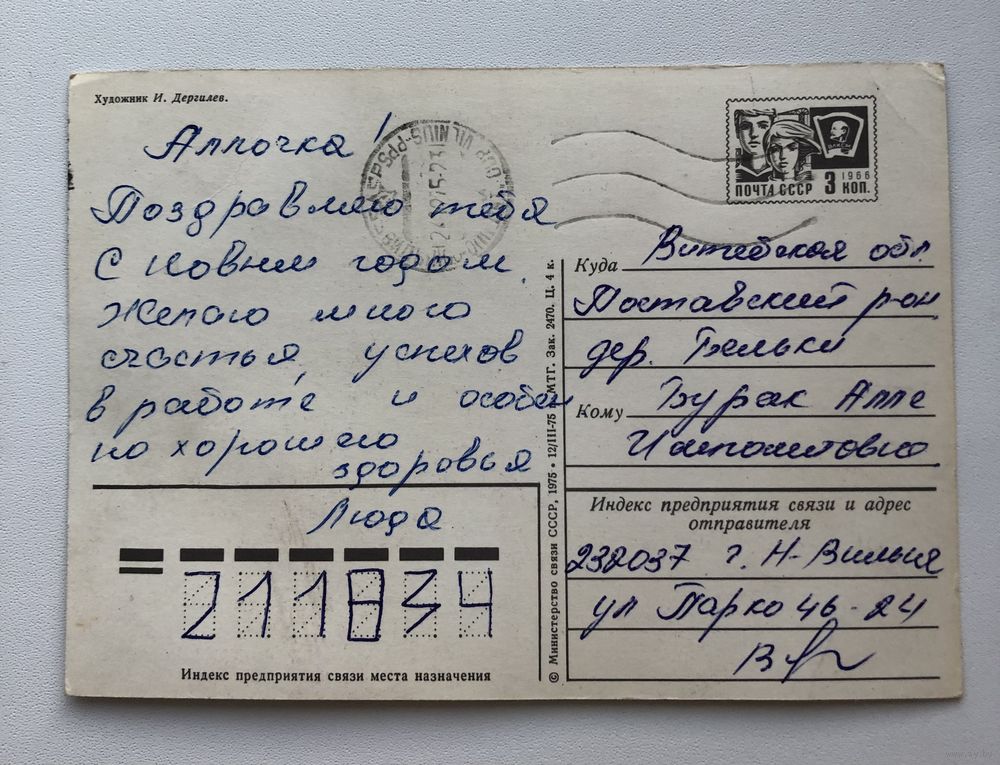 Художник И. Дергилев.
Аллочка!
Поздравляю тебя
с Новым годом.
Желаю много
счастья, успехов
в работе и особен
но хорошего
здоровья
Люда
ПОЧТА СССР 3 КОП.
1966
ВЛКСМ
VILNIUS
Куда Витебская обл.
Поставский р-он
дер. Бельки
Кому Бурак Алле
Индекс предприятия связи и адрес
отправителя
232037 г. Н-Вильня
ул Парко 46-24
211834
Индекс предприятия связи места назначения
© Министерство связи СССР, 1975 • 12/III-75 г. МТГ. Зак. 2470. Ц. 4 к.